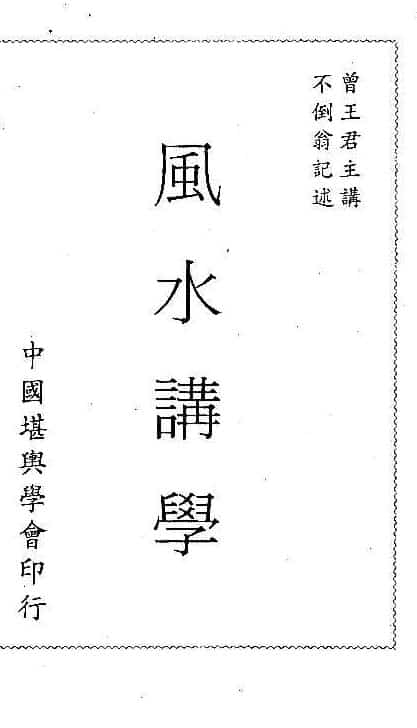 曾王君主講
不倒翁記述
風水講學
中國堪輿學會印行